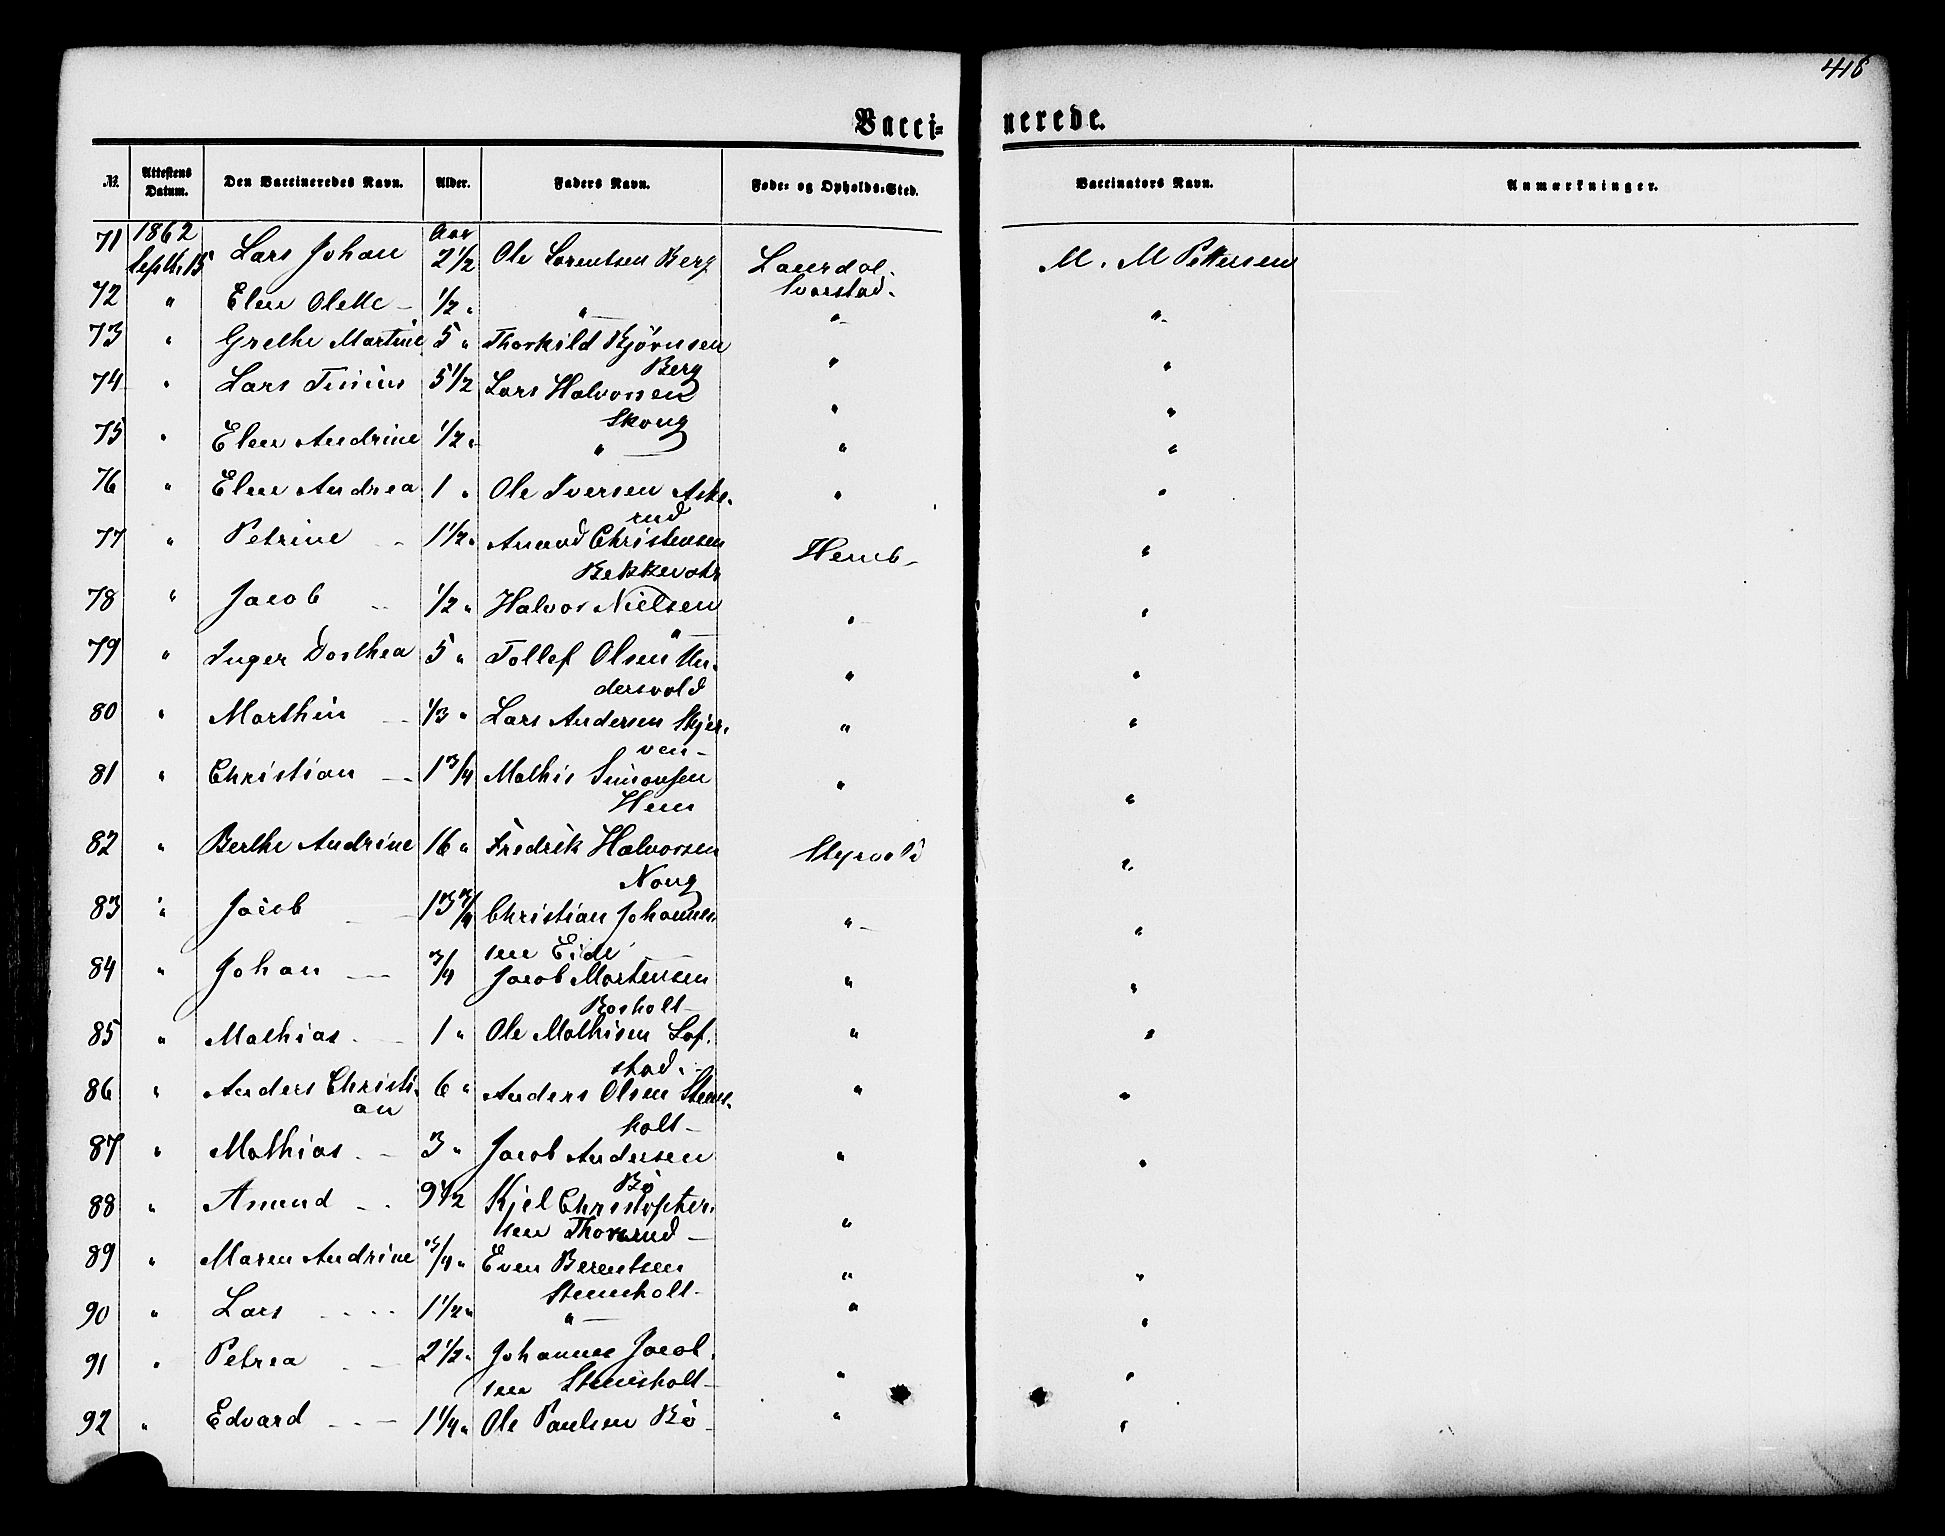 418
Vacci- nerede.
№. Attestens Datum. Den Vaccineredes Navn. Alder. Faders Navn. Føde- og Opholds-Sted. Vaccinators Navn. Anmærkninger.
1862 Aar
71 Septbr 15 Lars Johan 2 1/2 Ole Lorentsen Berg Laurdal.
M. M Pettersen
Svarstad.
72 " Elen Olette — 1/2 " " — " "
73 " Grethe Martine 5 " Thorkild Bjørnsen " "
Berg
74 " Lars Tinius 5 1/2 Lars Halvorsen " "
Skoug
75 " Elen Andrine 1/2 " " — " "
76 " Elen Andrea 1 " Ole Iversen Aske- " "
rud
77 " Petrine 1 1/2 " Amund Christensen Hemb- "
Bekkevahr
78 " Jacob 1/2 " Halvor Nielsen " "
" —
79 " Inger Dorthea 5 " Tollef Olsen Un- " "
dersvold
80 " Marthin — 1/3 " Lars Andersen Skjer- " "
ven —
81 " Christian — 1 3/4 Mathis Simonsen " "
Hem
82 " Berthe Andrine 16 " Fredrik Halvorsen Styrvold "
Noug
83 " Jacob — 13 3/4 Christian Johannes- " "
sen Eide —
84 " Johan — 3/4 Jacob Mortensen " "
Borholt —
85 " Mathias — 1 " Ole Mathisen Lof- " "
stad.
86 " Anders Christi- 6 " Anders Olsen Stens- " "
an
holt —
87 " Mathias — 3 " Jacob Andersen " "
Bø
88 " Amund — 9 1/2 Kjel Christopher- " "
sen Thorsrud —
89 " Maren Andrine 3/4 " Even Berentsen " "
Stensholt —
90 " Lars — 1 1/2 " " — " "
91 " Petrea — 2 1/2 " Johannes Jacob- " "
sen Stensholt —
92 " Edvard — 1 1/4 " Ole Paulsen Bø — " "